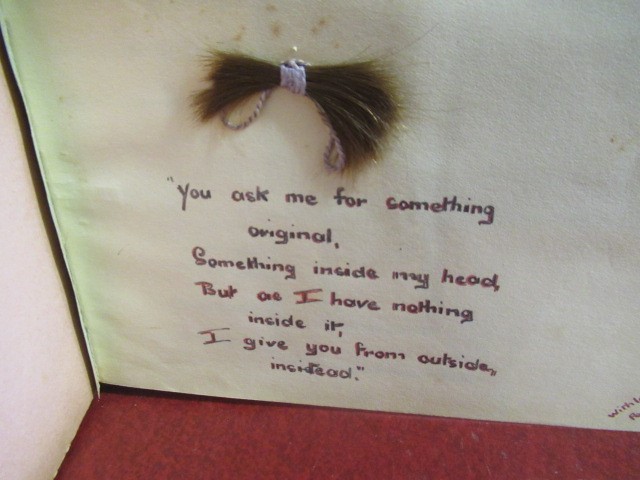 "You ask me for something
original,
Something inside my head,
But as I have nothing
inside it,
I give you from outside,
insidead."
With